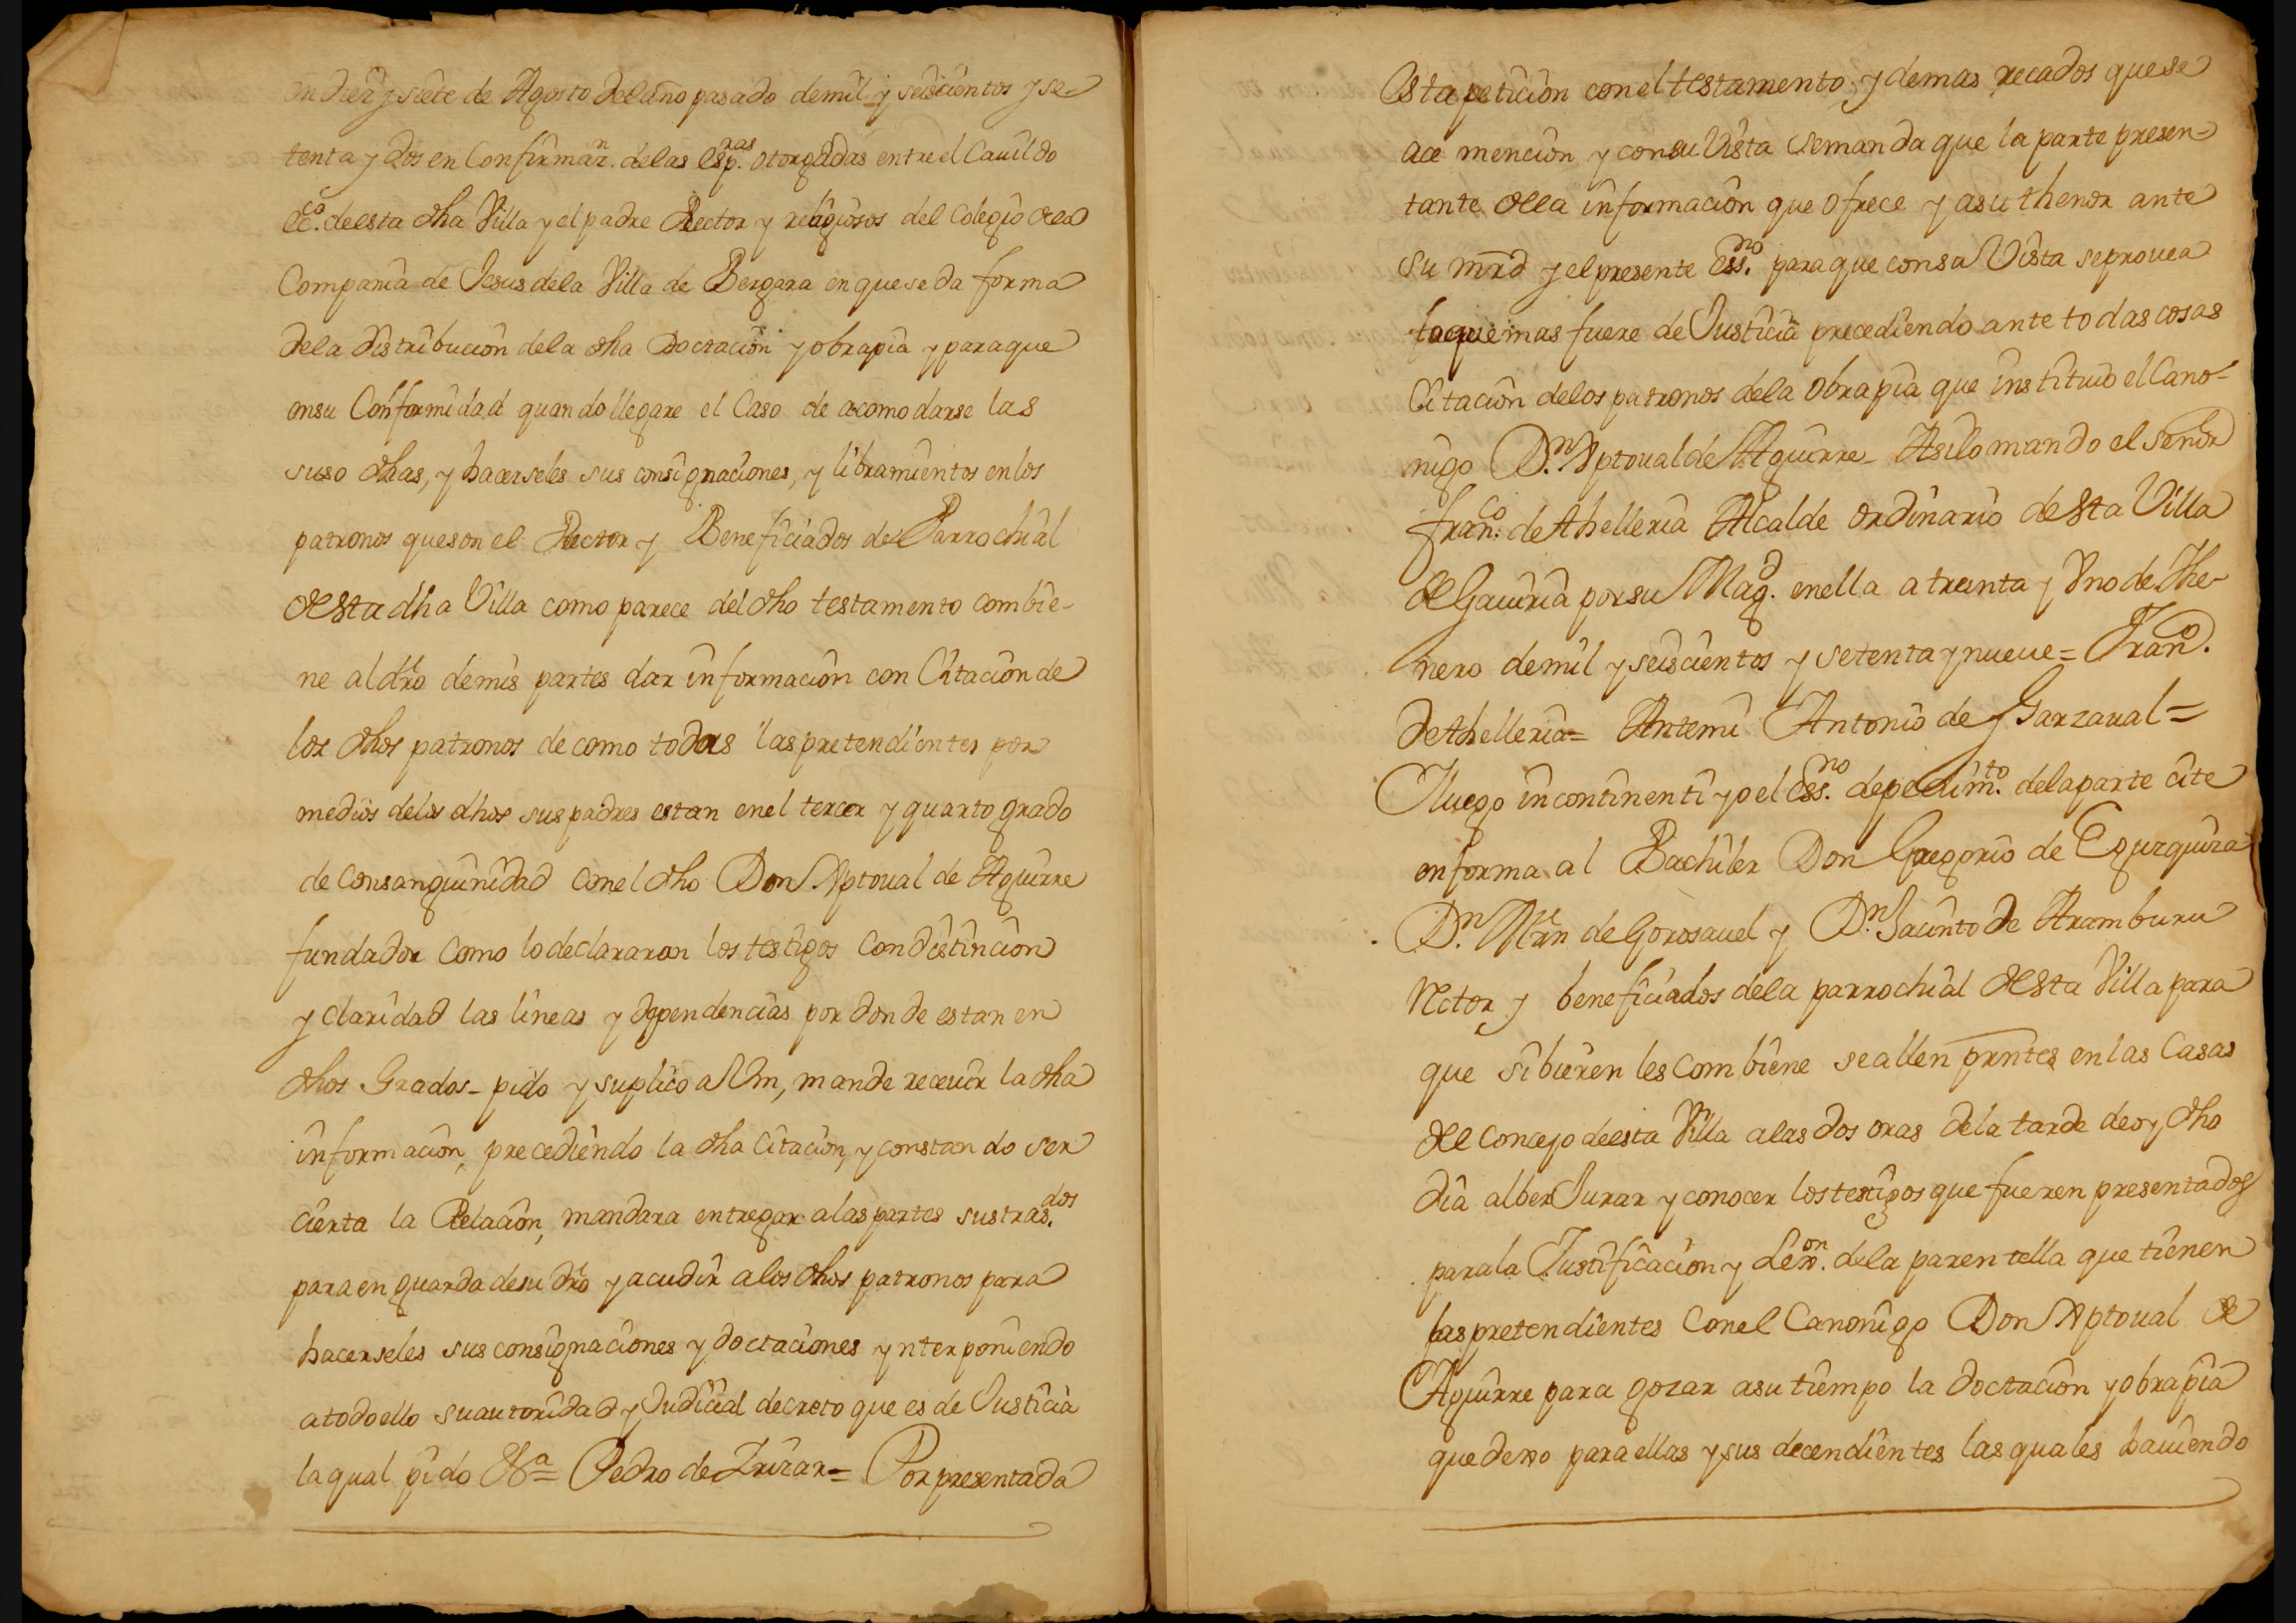 en diez y siete de Agosto del año pasado de mil y seiscientos y se-
tenta y dos en Confirmaz.n de las esp.ras otorgadas entre el Cauildo
ec.co de esta dha Villa y el padre Rector y religiosos del Colegio de la
Compania de Jesus de la Villa de Bergara en que se da forma
de la distribucion de la dha Doctacion y obra pia y para que
en su Conformidad quando llegare el Caso de acomodarse las
suso dhas, y hacerseles sus consignaciones, y libramientos en los
patronos que son el Rector y Beneficiados de Parrochial
de esta dha Villa como parece del dho testamento combie-
ne al dro de mis partes dar informacion con Citacion de
los dhos patronos de como todas las pretendientes por
medios de los dhos sus padres estan en el tercer y quarto grado
de Consanguinidad con el dho Don Xptoual de Aguirre
fundador como lo declararon los testigos con distincion
y claridad las lineas y dependencias por donde estan en
dhos Grados - pido y suplico a Vm, mande receuir la dha
informacion, precediendo la dha Citacion, y constando ser
cierta la Relacion, mandara entregar a las partes sus tras.dos
para en guarda de su dro y acudir a los dhos patronos para
hacerseles sus consignaciones y doctaciones ynterponiendo
a todo ello su autoridad y Judicial decreto que es de Justicia
la qual pido &a = Pedro de Irizar = Por presentada
Esta peticion con el testamento y demas recados que se
ace mencion y con su Vista se manda que la parte presen-
tante de la informacion que ofrece y a su thenor ante
su mrd y el presente Ess.no para que con sa Vista se prouea
lo que mas fuere de Justicia precediendo ante todas cosas
Citacion de los patronos de la Obra pia que instituio el Cano-
nigo D.n Xptoual de Aguirre - Asi lo mando el señor
fran.co de Athelleria Alcalde ordinario de esta Villa
de Gauiria por su Mag.d en ella a treinta y Uno de The-
nero de mil y seiscientos y setenta y nueue = Fran.co
de Athelleria = Ante mi Antonio de Garzaual =
Y luego incontinenti yo el Ess.no de pedim.to de la parte cite
en forma al Bachiler Don Gregorio de Eguzquiza
D.n Mrn de Gorosauel y D.n Jacinto de Aramburu
Rector y beneficiados de la parrochial de esta Villa para
que si bieren les Combiene se allen prntes en las Casas
del Concejo de esta Villa a las dos oras de la tarde de oy dho
dia al ber Jurar y conocer los testigos que fueren presentados
para la Justificacion y Aer.on de la parentella que tienen
las pretendientes Con el Canonigo Don Xptoual de
Aguirre para gozar a su tiempo la doctacion y obra pia
que dexo para ellas y sus decendientes las quales hauiendo